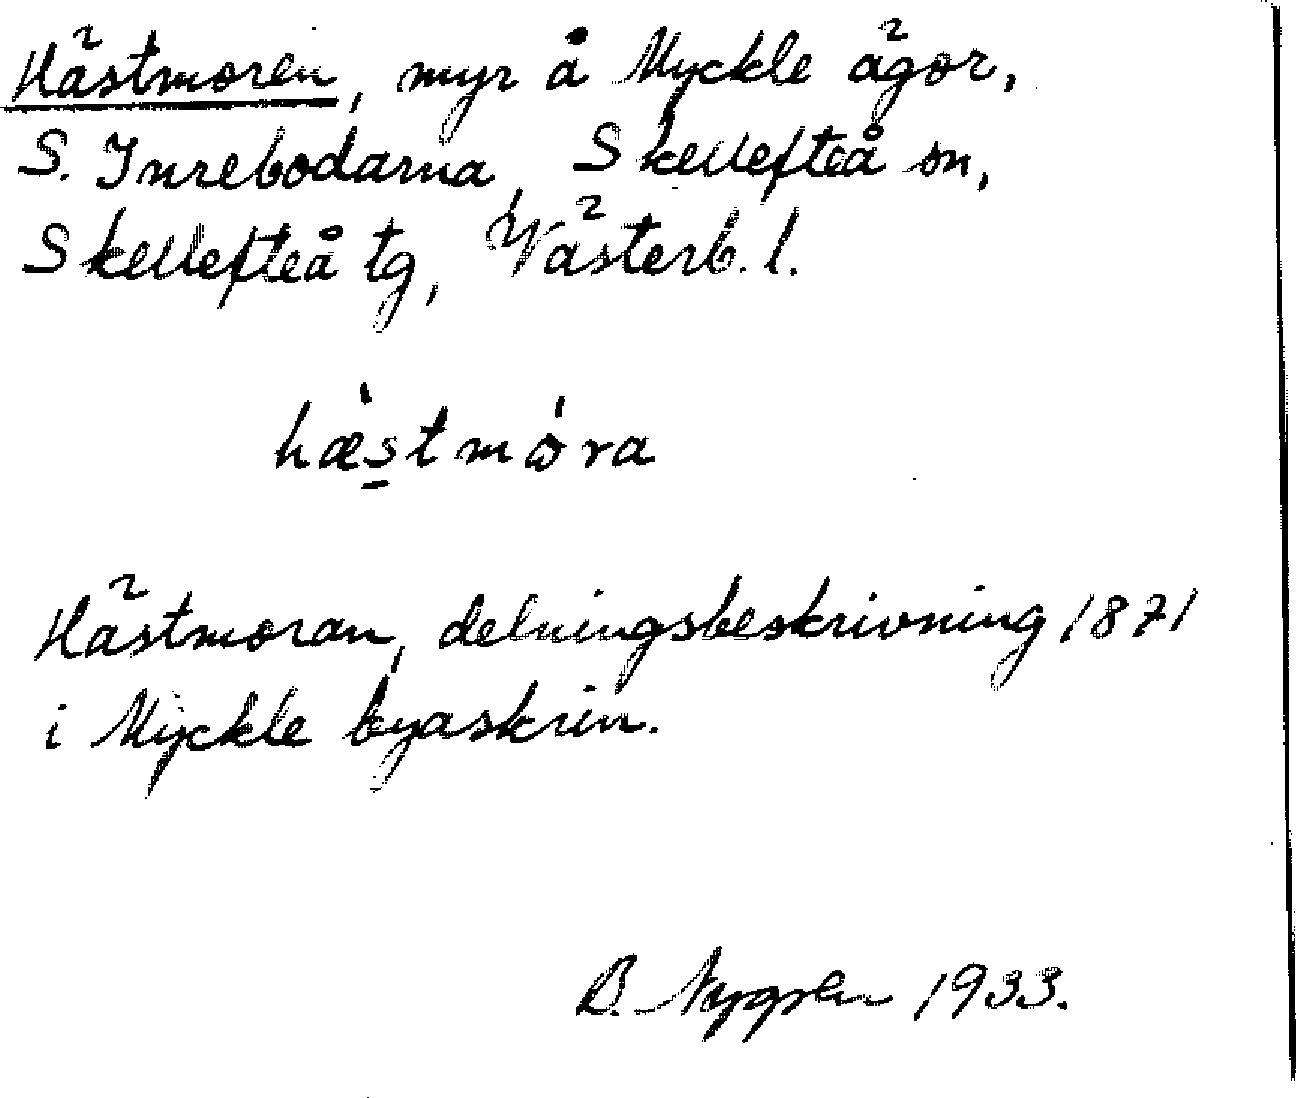 Hästmoren, myr å Myckle ägor,
S. Inrebodarna, Skellefteå sn,
Skellefteå tg, Västerb. l.
hæ̀stmɷ́ra
Hästmoran, delningsbeskrivning 1871
i Myckle byaskrin.
B. Nygren 1933.